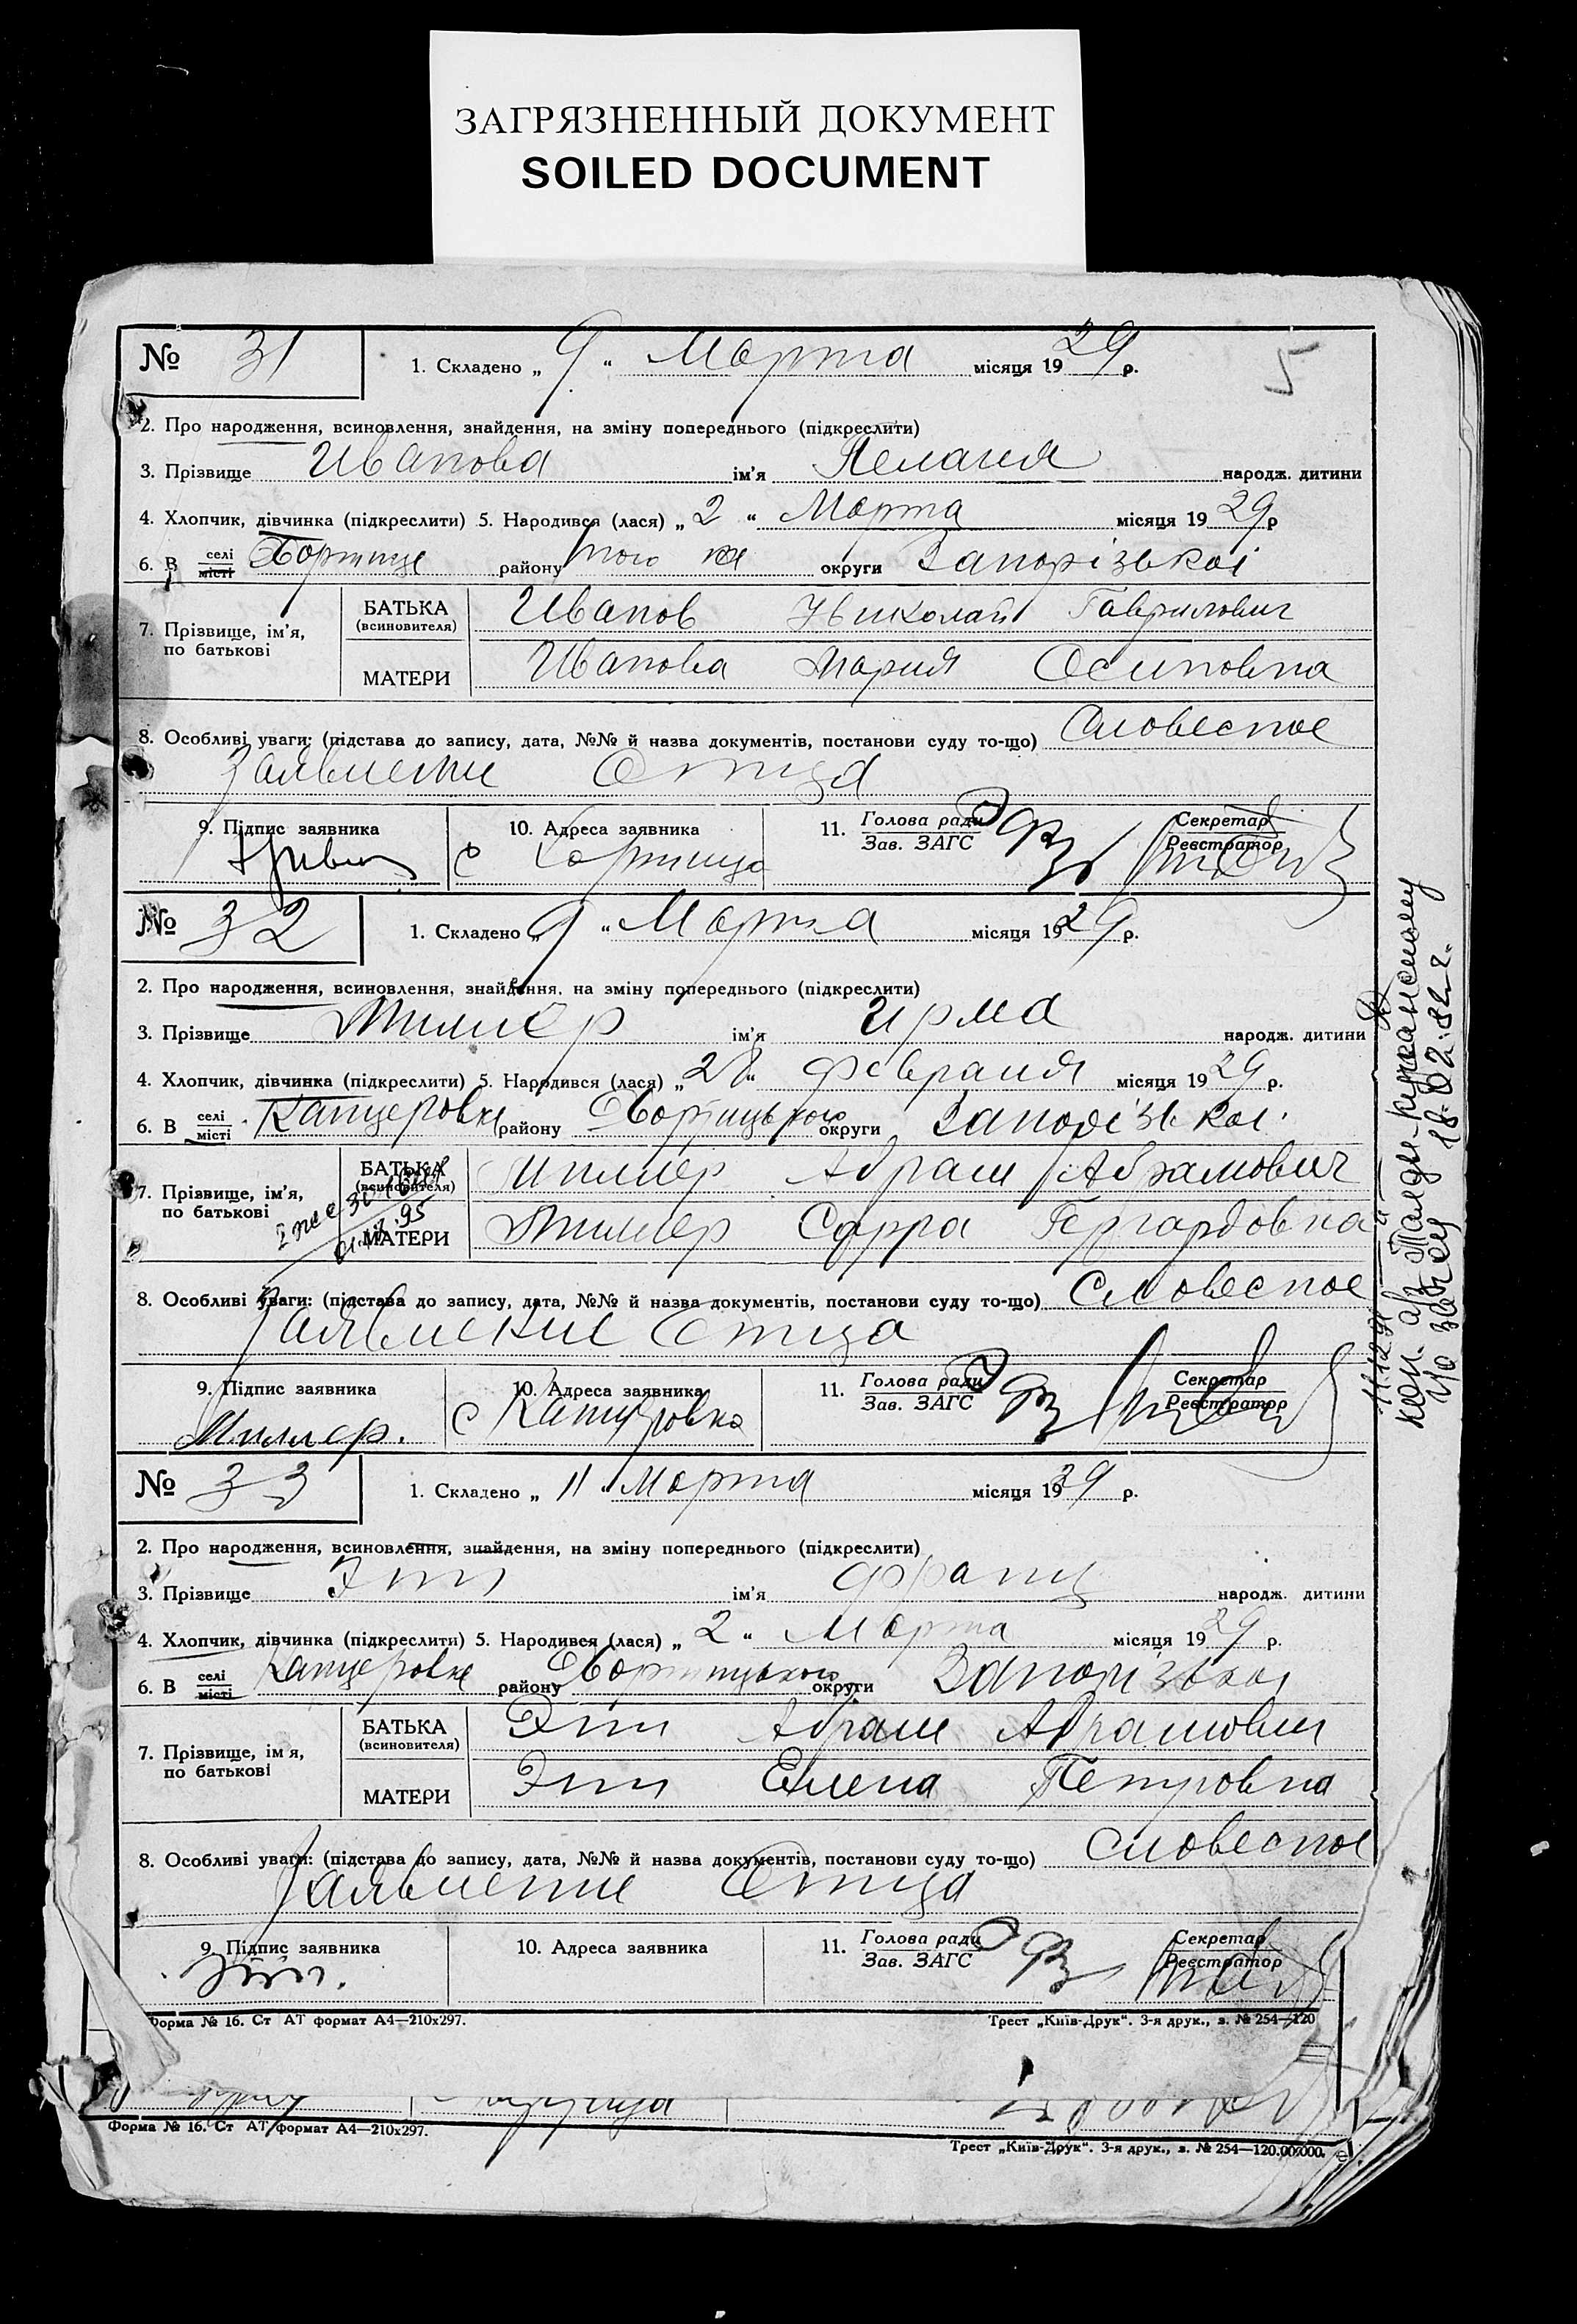 ЗАГРЯЗНЕННЫЙ ДОКУМЕНТ
SOILED DOCUMENT
5
№ 31 1. Складено „ 9 “ Марта місяця 1929 р.
2. Про народження, всиновлення, знайдення, на зміну попереднього (підкреслити)
3. Прізвище Иванова ім'я Пелагия народж. дитини
4. Хлопчик, дівчинка (підкреслити) 5. Народився (лася) „ 2 “ Марта місяця 1929 р
6. В селі місті Хортице району того же округи Запорізькоі
7. Прізвище, ім'я, по батькові БАТЬКА (всиновителя) Иванов Николай Гаврилович
МАТЕРИ Иванова Мария Осиповна
8. Особливі уваги: (підстава до запису, дата, №№ й назва документів, постанови суду то-що) Словесное
Заявление Отца
9. Підпис заявника 10. Адреса заявника 11. Голова ради Зав. ЗАГС Секретар Реєстратор
с Хортица
№ 32 1. Складено „ 9 “ Марта місяця 1929 р.
2. Про народження, всиновлення, знайдення, на зміну попереднього (підкреслити)
3. Прізвище Миллер ім'я Ирма народж. дитини
4. Хлопчик, дівчинка (підкреслити) 5. Народився (лася) „ 28 “ Февраля місяця 1929 р.
6. В селі місті Канцеровке району Хортицького округи Запорізькоі
7. Прізвище, ім'я, по батькові БАТЬКА (всиновителя) Миллер Абрам Абрамович
МАТЕРИ Миллер Сарра Гергардовна
8. Особливі уваги: (підстава до запису, дата, №№ й назва документів, постанови суду то-що) Словесное
Заявление Отца
9. Підпис заявника 10. Адреса заявника 11. Голова ради Зав. ЗАГС Секретар Реєстратор
Миллер. с Канцеровка
№ 33 1. Складено „ 11 “ Марта місяця 1929 р.
2. Про народження, всиновлення, знайдення, на зміну попереднього (підкреслити)
3. Прізвище Эпп ім'я Франц народж. дитини
4. Хлопчик, дівчинка (підкреслити) 5. Народився (лася) „ 2 “ Марта місяця 1929 р.
6. В селі місті Канцеровке району Хортицького округи Запорізькоі
7. Прізвище, ім'я, по батькові БАТЬКА (всиновителя) Эпп Абрам Абрамович
МАТЕРИ Эпп Елена Петровна
8. Особливі уваги: (підстава до запису, дата, №№ й назва документів, постанови суду то-що) Словесное
Заявление Отца
9. Підпис заявника 10. Адреса заявника 11. Голова ради Зав. ЗАГС Секретар Реєстратор
Эпп.
Форма № 16. Ст АТ формат А4—210х297. Трест „Київ-Друк“. 3-я друк., з. № 254—120
Форма № 16. Ст АТ формат А4—210х297. Трест „Київ-Друк“. 3-я друк., з. № 254—120.00000.